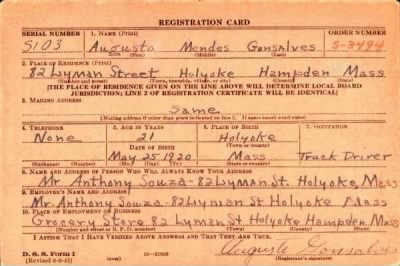 REGISTRATION CARD
SERIAL NUMBER 1. NAME (Print) ORDER NUMBER
S103 Augusto Mendes Gonsalves S-3494
(First) (Middle) (Last)
2. PLACE OF RESIDENCE (Print)
82 Lyman Street Holyoke Hampden Mass
(Number and street) (Town, township, village, or city) (County) (State)
[THE PLACE OF RESIDENCE GIVEN ON THE LINE ABOVE WILL DETERMINE LOCAL BOARD
JURISDICTION; LINE 2 OF REGISTRATION CERTIFICATE WILL BE IDENTICAL]
3. MAILING ADDRESS
Same
[Mailing address if other than place indicated on line 2. If same insert word same]
4. TELEPHONE 5. AGE IN YEARS 6. PLACE OF BIRTH 7. OCCUPATION
None 21 Holyoke
DATE OF BIRTH (Town or county)
May 25 1920 Mass Truck Driver
(Exchange) (Number) (Mo.) (Day) (Yr.) (State or country)
8. NAME AND ADDRESS OF PERSON WHO WILL ALWAYS KNOW YOUR ADDRESS
Mr Anthony Souza-82 Lyman St. Holyoke, Mass
9. EMPLOYER'S NAME AND ADDRESS
Mr. Anthony Souza-82 Lyman St Holyoke Mass
10. PLACE OF EMPLOYMENT OR BUSINESS
Grocery Store 82 Lyman St Holyoke Hampden Mass
(Number and street or R. F. D. number) (Town) (County) (State)
I AFFIRM THAT I HAVE VERIFIED ABOVE ANSWERS AND THAT THEY ARE TRUE.
D. S. S. Form 1
(Revised 6-9-41) (over) Auguste Gonsalves